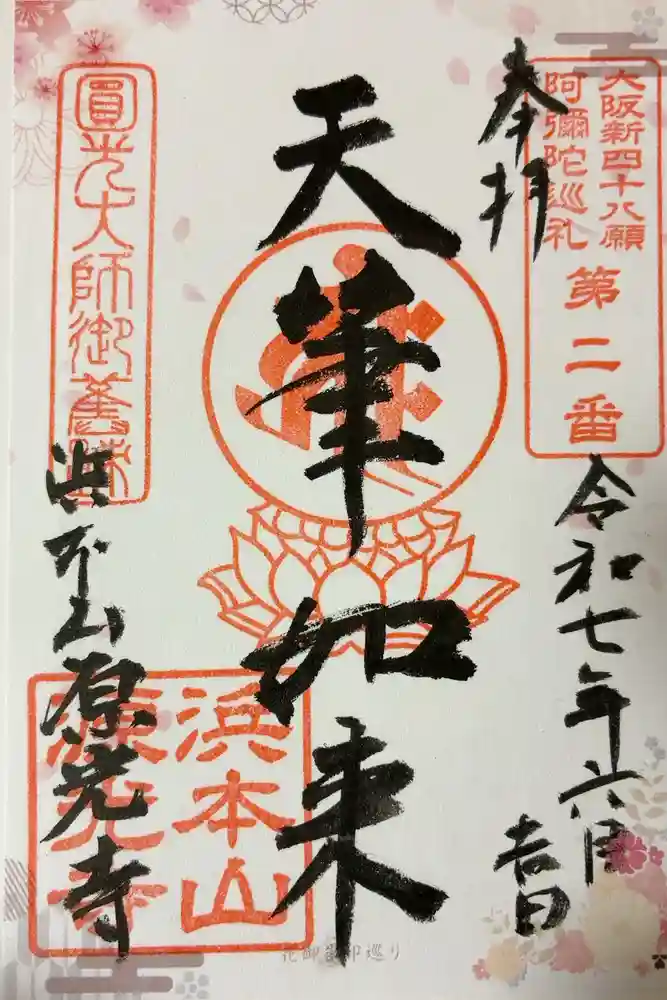 奉拝
大阪新四十八願
阿彌陀巡礼
第二番
令和七年六月
吉日
天筆如来
圓光大師御舊跡
浜本山源光寺
浜本山
源光寺
花御朱印巡り